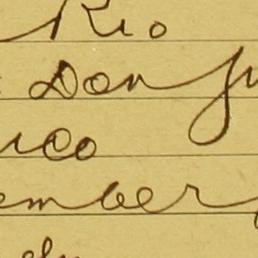 Rio
Don Ju
ico
ember